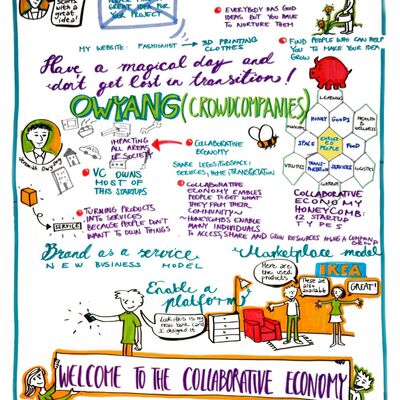 Starts
with a
"idea!"
GREAT IDEA FOR
YOUR PROJECT
EVERYBODY HAS GOOD
IDEAS BUT YOU HAVE
TO NURTURE THEM
FIND PEOPLE WHO CAN HELP
YOU TO MAKE YOUR IDEA
GROW
MY WEBSITE: FASHIONIST → 3D PRINTING
CLOTHES
Have a magical day and
don't get lost in transition!
OWYANG (CROWDCOMPANIES)
IMPACTING
ALL AREAS
OF SOCIETY
COLLABORATIVE
ECONOMY
VC OWNS
MOST OF
THIS STARTUPS
COLLABORATIVE
ECONOMY ENABLES
PEOPLE TO GET WHAT
THEY FROM THEIR
COMMUNITY
HONEYCOMBS ENABLE
MANY INDIVIDUALS
TO ACCESS, SHARE AND GROW RESOURCES IN AS A COMMON
GROUP
SERVICE
TURNING PRODUCTS
INTO SERVICES
BECAUSE PEOPLE DON'T
WANT TO OWN THINGS
LEARNING
MONEY
GOODS
HEALTH &
WELLNESS
SPACE
PEOPLE
FOOD
UTILITIES
TRANSPORTATION
SERVICES
LOGISTICS
COLLABORATIVE
ECONOMY
HONEYCOMB:
12 STARTUP
TYPES
Brand as a service
NEW BUSINESS MODEL
Marketplace model
Enable a
platform
Look this is my
new bank card
I designed it
Here are
the used
products
IKEA
These are
also
available
GREAT!
WELCOME TO THE COLLABORATIVE ECONOMY